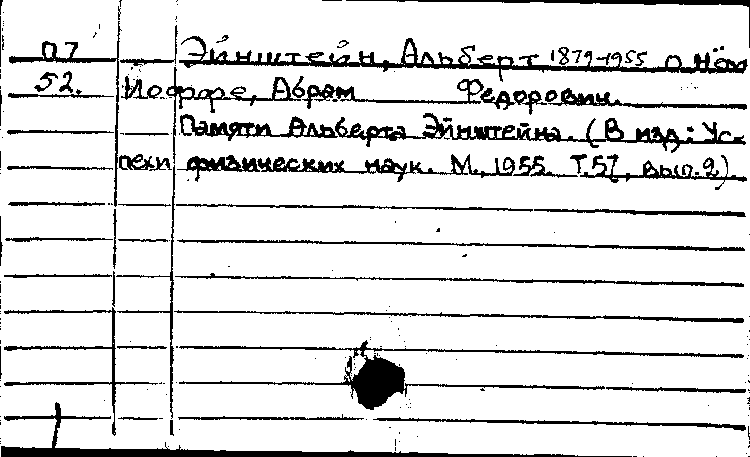 П7 Эйнштейн, Альберт 1879-1955 о нём
52. Иоффе, Абрам Федорович.
Памяти Альберта Эйнштейна. (В изд.: Ус-
пехи физических наук. М., 1955. Т.57, вып.2).